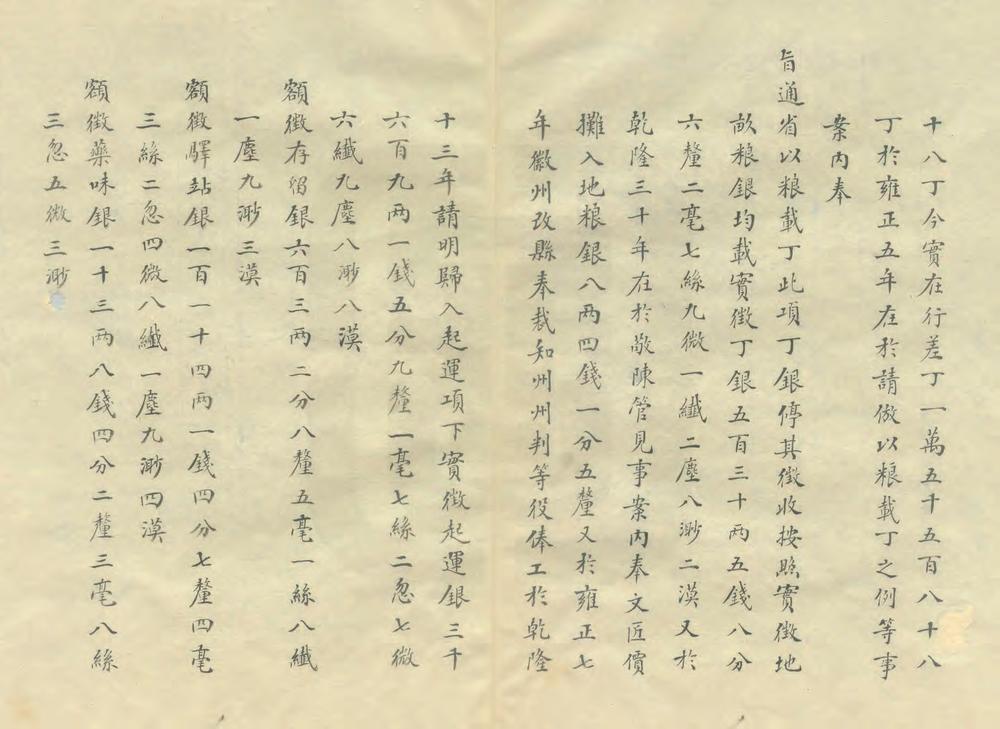 十八丁今實在行差丁一萬五千五百八十八
丁於雍正五年在於請倣以粮載丁之例等事
案内奉
旨通省以粮載丁此項丁銀停其徵收按照實徵地
畝粮銀均載實徵丁銀五百三十两五錢八分
六釐二毫七絲九微一纖二塵八渺二漠又於
乾隆三十年在於敬陳管見事案内奉文匠價
攤入地粮銀八两四錢一分五釐又於雍正七
年徽州改縣奉裁知州州判等役俸工於乾隆
十三年請明歸入起運項下實徵起運銀三千
六百九两一錢五分九釐一毫七絲二忽七微
六纖九塵八渺八漠
額徵存留銀六百三两二分八釐五毫一絲八纖
一塵九渺三漠
額徵驛站銀一百一十四两一錢四分七釐四毫
三絲二忽四微八纖一塵九渺四漠
額徵藥味銀一十三两八錢四分二釐三毫八絲
三忽五微三渺